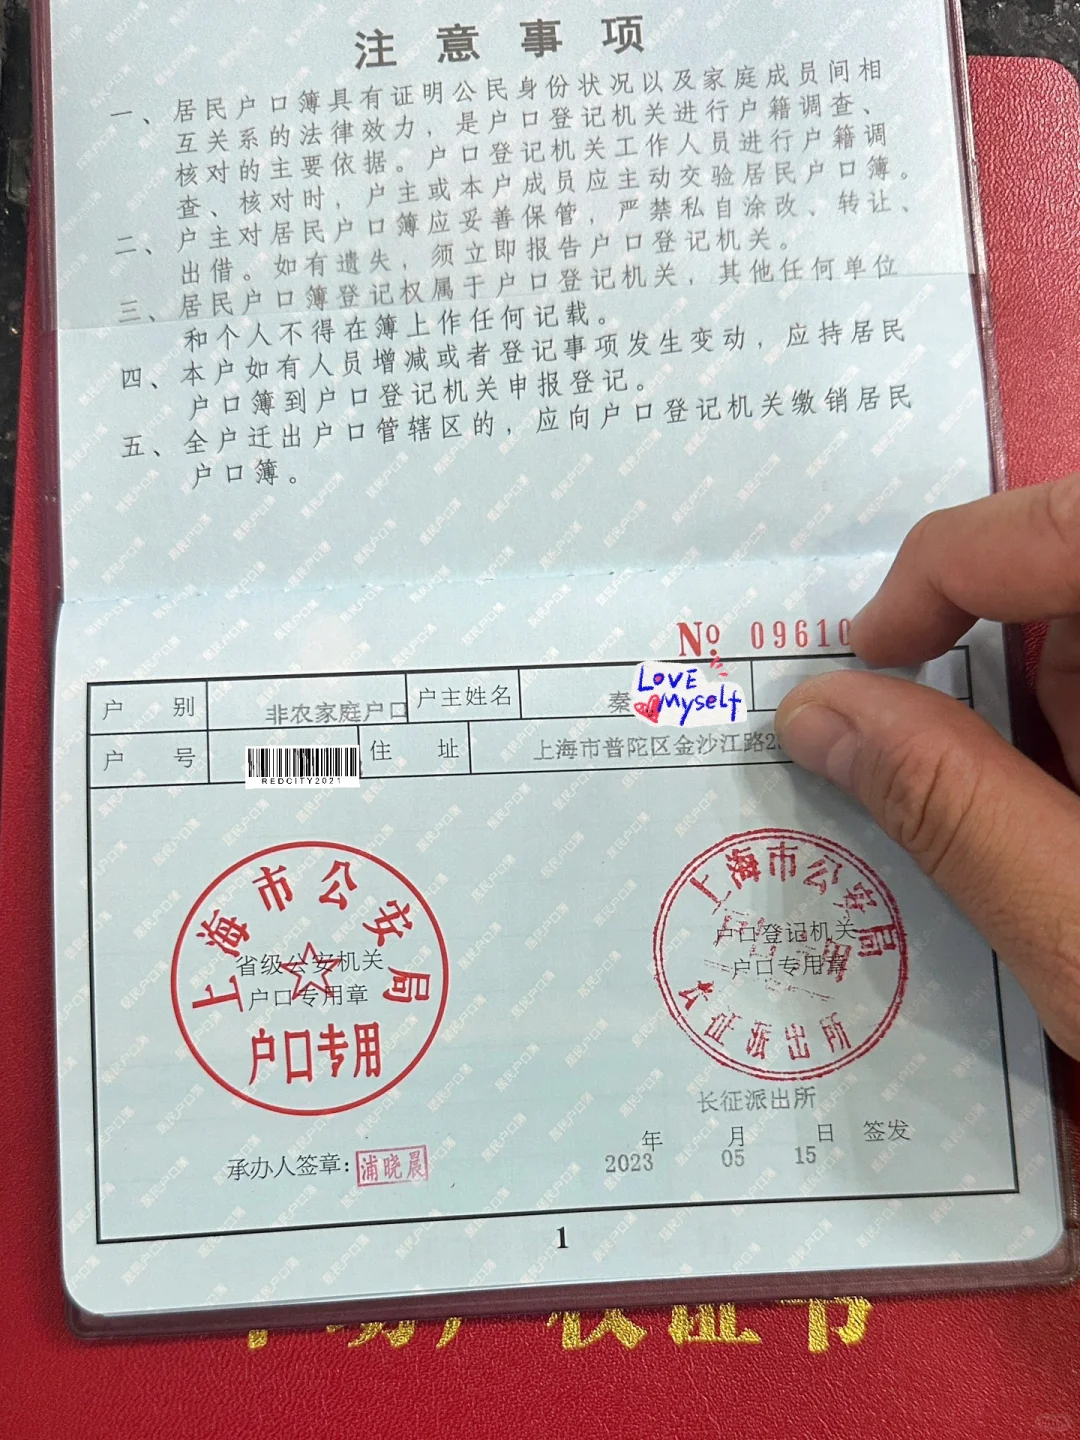 注意事项
一、居民户口簿具有证明公民身份状况以及家庭成员间相
互关系的法律效力，是户口登记机关进行户籍调查、
核对的主要依据。户口登记机关工作人员进行户籍调
查、核对时，户主或本户成员应主动交验居民户口簿。
二、户主对居民户口簿应妥善保管，严禁私自涂改、转让、
出借。如有遗失，须立即报告户口登记机关。
三、居民户口簿登记权属于户口登记机关，其他任何单位
和个人不得在簿上作任何记载。
四、本户如有人员增减或者登记事项发生变动，应持居民
户口簿到户口登记机关申报登记。
五、全户迁出户口管辖区的，应向户口登记机关缴销居民
户口簿。
№ 09610
户别 非农家庭户口 户主姓名 秦 LOVE Myself
户号 REDCITY2021 住址 上海市普陀区金沙江路2
上海市公安局
省级公安机关
户口专用章
户口专用
上海市公安局
户口登记机关
户口专用章
长征派出所
长征派出所
承办人签章：浦晓晨
2023年05月15日签发
1
不动产权证书